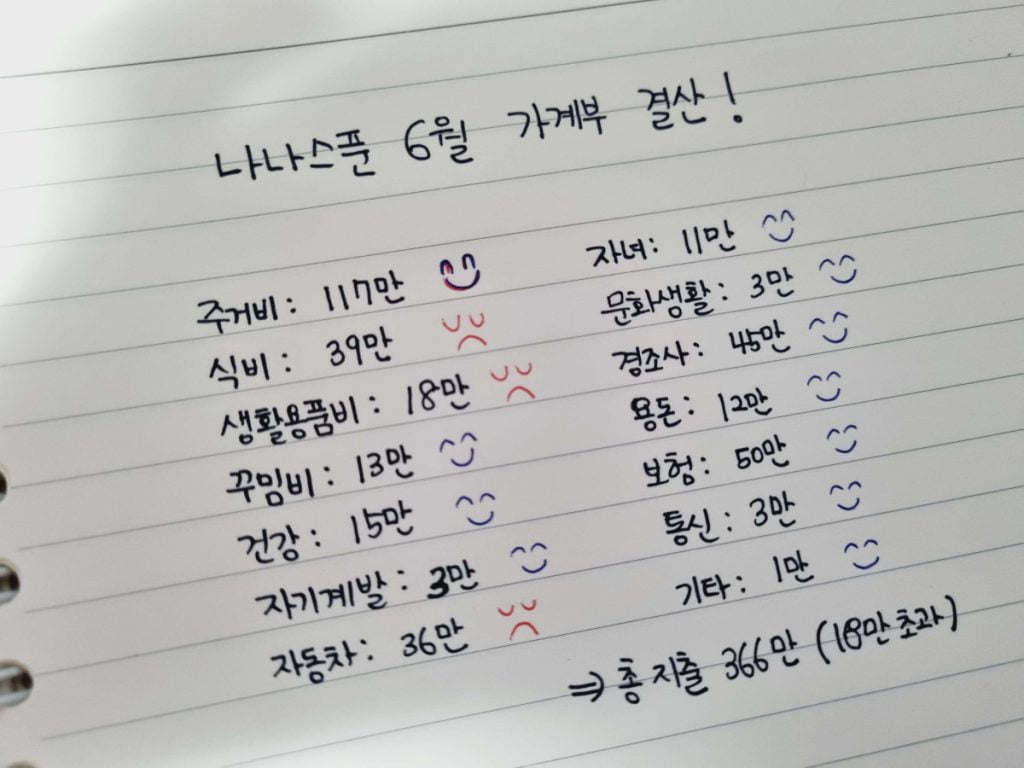 나나스푼 6월 가계부 결산!
주거비: 117만
식비: 39만
생활용품비: 18만
꾸밈비: 13만
건강: 15만
자기계발: 3만
자동차: 36만
자녀: 11만
문화생활: 3만
경조사: 45만
용돈: 12만
보험: 50만
통신: 3만
기타: 1만
⇒ 총 지출 366만 (18만 초과)